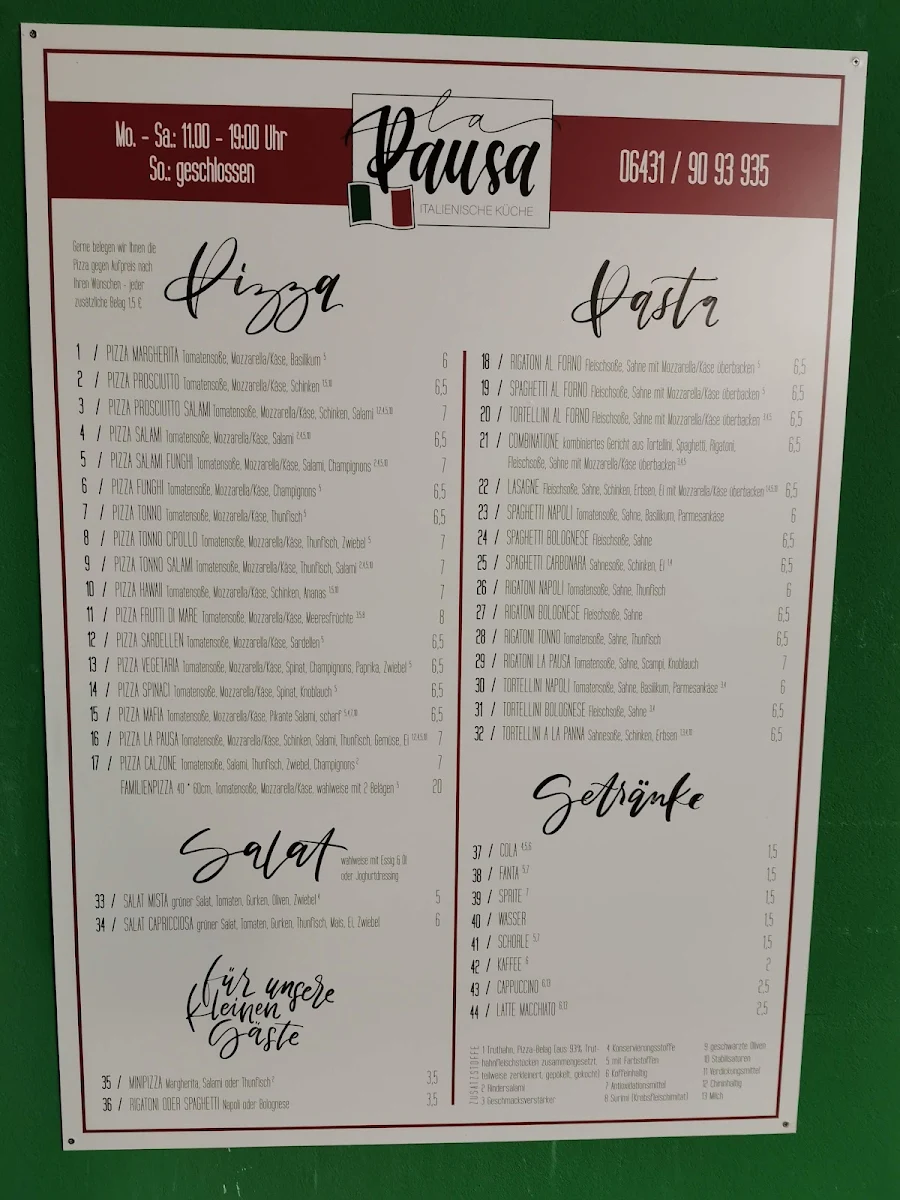 Mo. - Sa.: 11.00 - 19:00 Uhr
So.: geschlossen
la
Pausa
ITALIENISCHE KÜCHE
06431 / 90 93 935
Gerne belegen wir Ihnen die
Pizza gegen Aufpreis nach
Ihren Wünschen - jeder
zusätzliche Belag 1,5 €
Pizza
1 / PIZZA MARGHERITA Tomatensoße, Mozzarella/Käse, Basilikum 5 6
2 / PIZZA PROSCIUTTO Tomatensoße, Mozzarella/Käse, Schinken 1,5,10 6,5
3 / PIZZA PROSCIUTTO SALAMI Tomatensoße, Mozzarella/Käse, Schinken, Salami 1,2,4,5,10 7
4 / PIZZA SALAMI Tomatensoße, Mozzarella/Käse, Salami 2,4,5,10 6,5
5 / PIZZA SALAMI FUNGHI Tomatensoße, Mozzarella/Käse, Salami, Champignons 2,4,5,10 7
6 / PIZZA FUNGHI Tomatensoße, Mozzarella/Käse, Champignons 5 6,5
7 / PIZZA TONNO Tomatensoße, Mozzarella/Käse, Thunfisch 5 6,5
8 / PIZZA TONNO CIPOLLO Tomatensoße, Mozzarella/Käse, Thunfisch, Zwiebel 5 7
9 / PIZZA TONNO SALAMI Tomatensoße, Mozzarella/Käse, Thunfisch, Salami 2,4,5,10 7
10 / PIZZA HAWAII Tomatensoße, Mozzarella/Käse, Schinken, Ananas 1,5,10 7
11 / PIZZA FRUTTI DI MARE Tomatensoße, Mozzarella/Käse, Meeresfrüchte 3,5,8 8
12 / PIZZA SARDELLEN Tomatensoße, Mozzarella/Käse, Sardellen 5 6,5
13 / PIZZA VEGETARIA Tomatensoße, Mozzarella/Käse, Spinat, Champignons, Paprika, Zwiebel 5 6,5
14 / PIZZA SPINACI Tomatensoße, Mozzarella/Käse, Spinat, Knoblauch 5 6,5
15 / PIZZA MAFIA Tomatensoße, Mozzarella/Käse, Pikante Salami, scharf 6,5
16 / PIZZA LA PAUSA Tomatensoße, Mozzarella/Käse, Schinken, Salami, Thunfisch, Gemüse, Ei 1,2,4,5,10 7
17 / PIZZA CALZONE Tomatensoße, Salami, Thunfisch, Zwiebel, Champignons 2 7
FAMILIENPIZZA 40 * 60cm, Tomatensoße, Mozzarella/Käse, wahlweise mit 2 Belägen 5 20
Salat
wahlweise mit Essig & Öl
oder Joghurtdressing
33 / SALAT MISTA grüner Salat, Tomaten, Gurken, Oliven, Zwiebel 4 5
34 / SALAT CAPRICCIOSA grüner Salat, Tomaten, Gurken, Thunfisch, Mais, Ei, Zwiebel 6
für unsere
kleinen
Gäste
35 / MINIPIZZA Margherita, Salami oder Thunfisch 2 3,5
36 / RIGATONI ODER SPAGHETTI Napoli oder Bolognese 3,5
Pasta
18 / RIGATONI AL FORNO Fleischsoße, Sahne mit Mozzarella/Käse überbacken 5 6,5
19 / SPAGHETTI AL FORNO Fleischsoße, Sahne mit Mozzarella/Käse überbacken 5 6,5
20 / TORTELLINI AL FORNO Fleischsoße, Sahne mit Mozzarella/Käse überbacken 3,4,5 6,5
21 / COMBINATIONE kombiniertes Gericht aus Tortellini, Spaghetti, Rigatoni, 6,5
Fleischsoße, Sahne mit Mozzarella/Käse überbacken 3,4,5
22 / LASAGNE Fleischsoße, Sahne, Schinken, Erbsen, Ei mit Mozzarella/Käse überbacken 6,5
23 / SPAGHETTI NAPOLI Tomatensoße, Sahne, Basilikum, Parmesankäse 6
24 / SPAGHETTI BOLOGNESE Fleischsoße, Sahne 6,5
25 / SPAGHETTI CARBONARA Sahnesoße, Schinken, Ei 6,5
26 / RIGATONI NAPOLI Tomatensoße, Sahne, Thunfisch 6
27 / RIGATONI BOLOGNESE Fleischsoße, Sahne 6,5
28 / RIGATONI TONNO Tomatensoße, Sahne, Thunfisch 6,5
29 / RIGATONI LA PAUSA Tomatensoße, Sahne, Scampi, Knoblauch 7
30 / TORTELLINI NAPOLI Tomatensoße, Sahne, Basilikum, Parmesankäse 3,4 6
31 / TORTELLINI BOLOGNESE Fleischsoße, Sahne 3,4 6,5
32 / TORTELLINI A LA PANNA Sahnesoße, Schinken, Erbsen 6,5
Getränke
37 / COLA 4,5,6 1,5
38 / FANTA 5,7 1,5
39 / SPRITE 7 1,5
40 / WASSER 1,5
41 / SCHORLE 5,7 1,5
42 / KAFFEE 6 2
43 / CAPPUCCINO 6,13 2,5
44 / LATTE MACCHIATO 6,13 2,5
ZUSATZSTOFFE
1 Truthahn, Pizza-Belag (aus 93% Trut-
hahnfleischstücken zusammengesetzt,
teilweise zerkleinert, gepökelt, gekocht)
2 Rindersalami
3 Geschmacksverstärker
4 Konservierungsstoffe
5 mit Farbstoffen
6 Koffeinhaltig
7 Antioxidationsmittel
8 Surimi (Krebsfleischimitat)
9 geschwärzte Oliven
10 Stabilisatoren
11 Verdickungsmittel
12 Chininhaltig
13 Milch